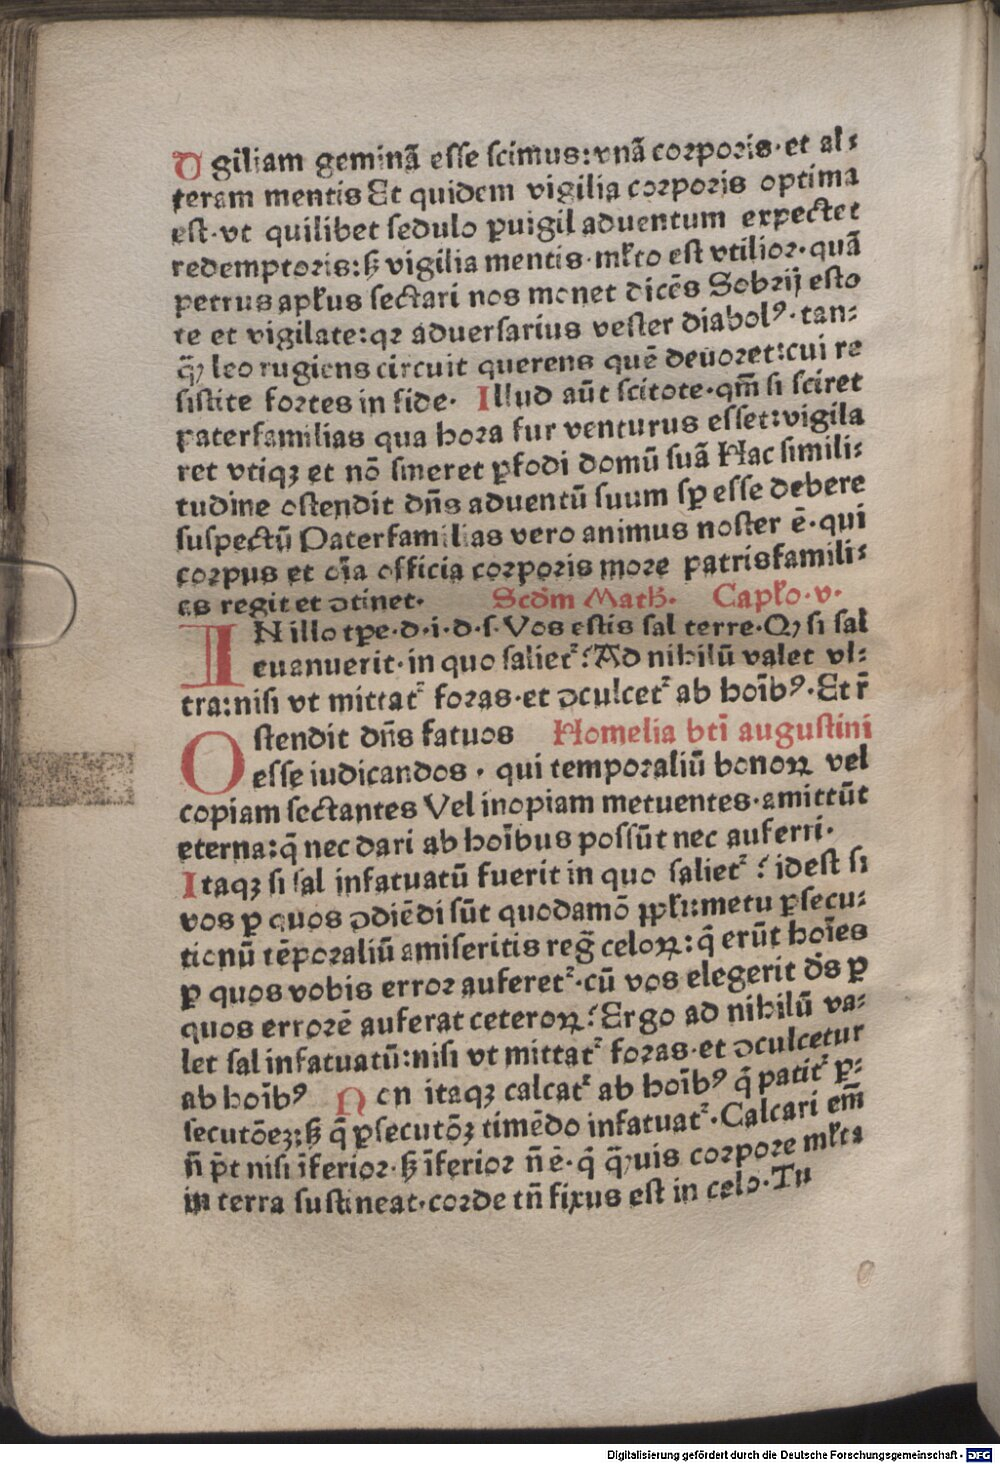 Vigiliam geminā esse scimus: vnā corporis· et al⸗
teram mentis Et quidem vigilia corporis optima
est· vt quilibet sedulo ꝑuigil aduentum expectet
redemptoris: sꝫ vigilia mentis· ml̄to est vtilior· quā
petrus apl̄us sectari nos monet dicēs Sobrij esto
te et vigilate: qꝛ aduersarius vester diabolꝰ· tan⸗
q̄ꝫ leo rugiens circuit querens quē deuoret: cui re
sistite fortes in fide· Illud aūt scitote· qm̄ si sciret
paterfamilias qua hora fur venturus esset: vigila
ret vtiqꝫ et nō sineret ꝑfodi domū suā Hac simili⸗
tudine ostendit dn̄s aduentū suum sꝑ esse debere
suspectū Paterfamilias vero animus noster ē· qui
corpus et oīa officia corporis more patrisfamili⸗
as regit et ↄtinet· Scdm Math· Capl̄o· v·
IN illo tꝑe· d· i· d· s· Vos estis sal terre· Qꝫ si sal
euanuerit· in quo salietᷣ? Ad nihilū valet vl⸗
tra: nisi vt mittatᷣ foras· et ↄculcetᷣ ab hoībꝰ· Et r̄
Ostendit dn̄s fatuos Homelia bt̄i augustini
esse iudicandos· qui temporaliū bonoꝝ vel
copiam sectantes Vel inopiam metuentes· amittūt
eterna: q̄ nec dari ab hoībus possūt nec auferri·
Itaqꝫ si sal infatuatū fuerit in quo salietᷣ? idest si
vos ꝑ quos ↄdiēdi sūt quodamō ꝓpl̄i: metu ꝑsecu⸗
tionū tēporaliū amiseritis regḡ celoꝝ: q̄ erūt hoīes
ꝑ quos vobis error auferetᷣ· cū vos elegerit ds̄ ꝑ
quos errorē auferat ceteroꝝ? Ergo ad nihilū va⸗
let sal infatuatū: nisi vt mittatᷣ foras· et ↄculcetur
ab hoībꝰ Non itaqꝫ calcatᷣ ab hoībꝰ q̄ patitᷣ ꝑ⸗
secutōeꝫ: sꝫ q̄ ꝑsecutōꝫ timēdo infatuatᷣ· Calcari em̄
n̄ p̄t nisi īferior· sꝫ īferior n̄ ē· q̄ q̄ꝫuis corpore ml̄ta
in terra sustineat· corde tn̄ fixus est in celo· Tu
Digitalisierung gefördert durch die Deutsche Forschungsgemeinschaft - DFG